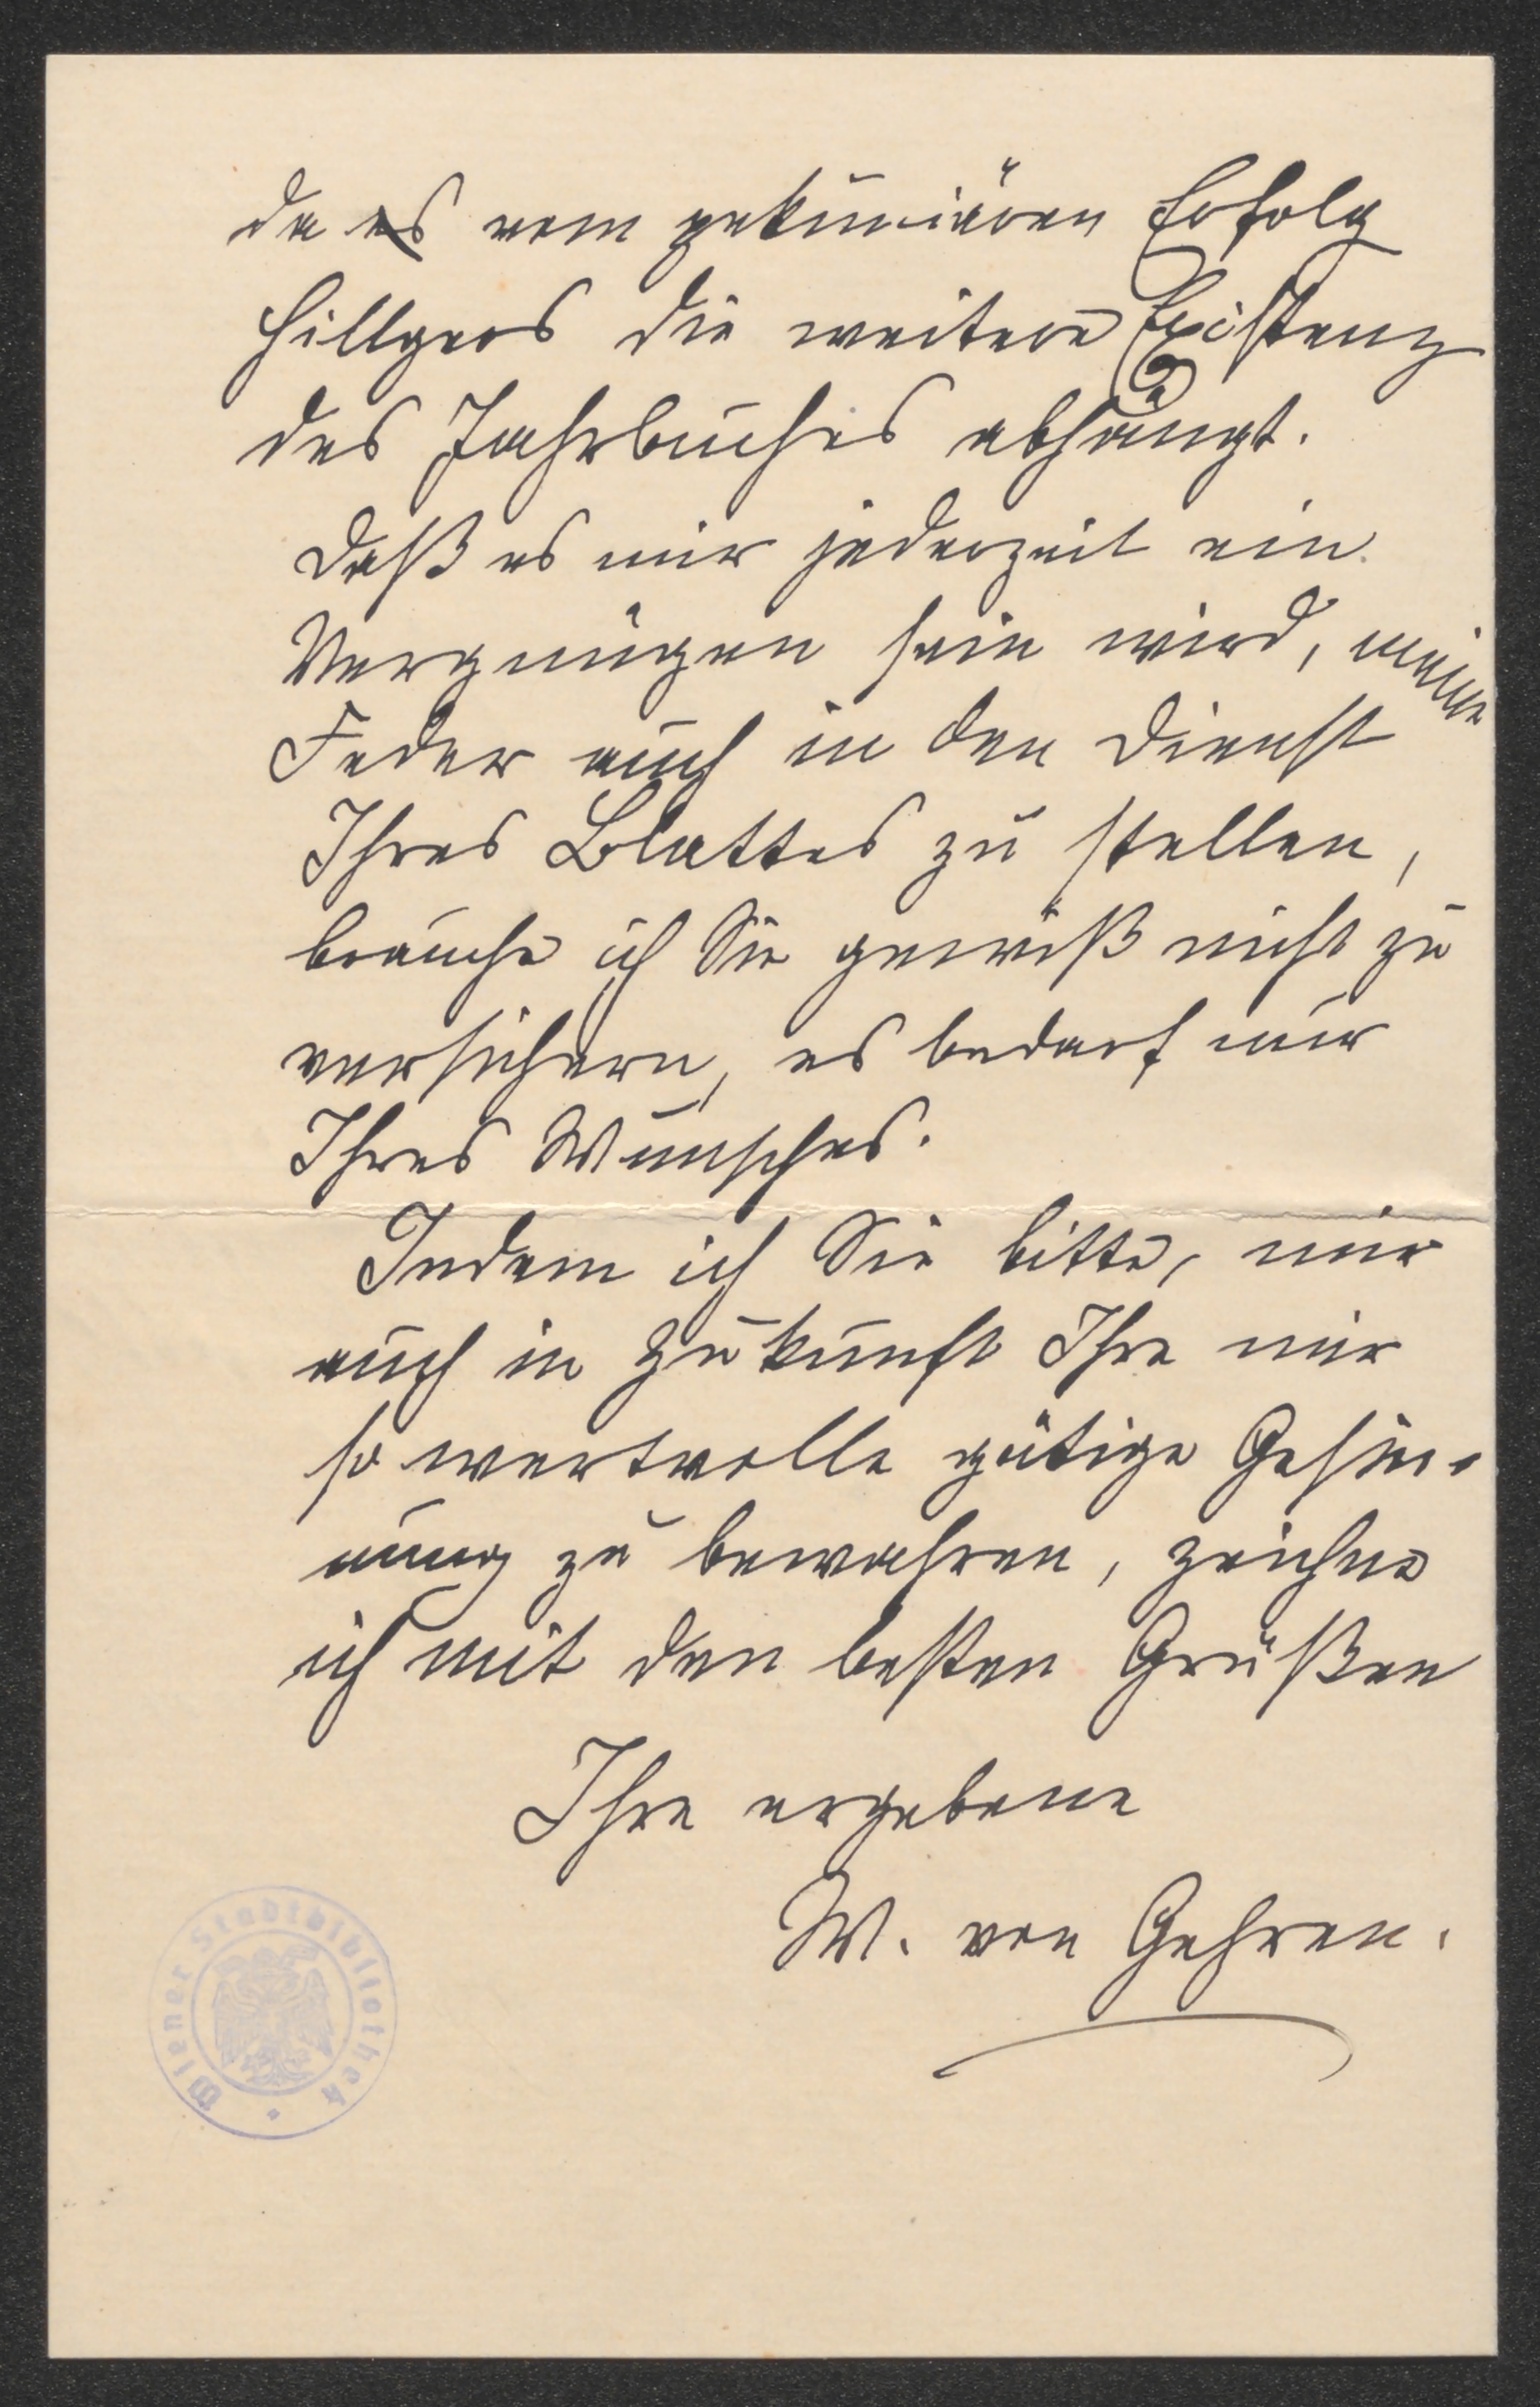 da es vom pekuniären Erfolg
Hillgers die weitere Existenz
des Jahrbuches abhängt.
Daß es mir jederzeit ein
Vergnügen sein wird, meine
Feder auch in den Dienst
Ihres Blattes zu stellen,
brauche ich Sie gewiß nicht zu
versichern, es bedarf nur
Ihres Wunsches.
Indem ich Sie bitte, mir
auch in Zukunft Ihre mir
so wertvolle gütige Gesin-
nung zu bewahren, zeichne
ich mit den besten Grüßen
Ihre ergebene
W. von Gehren.
Wiener Stadtbibliothek